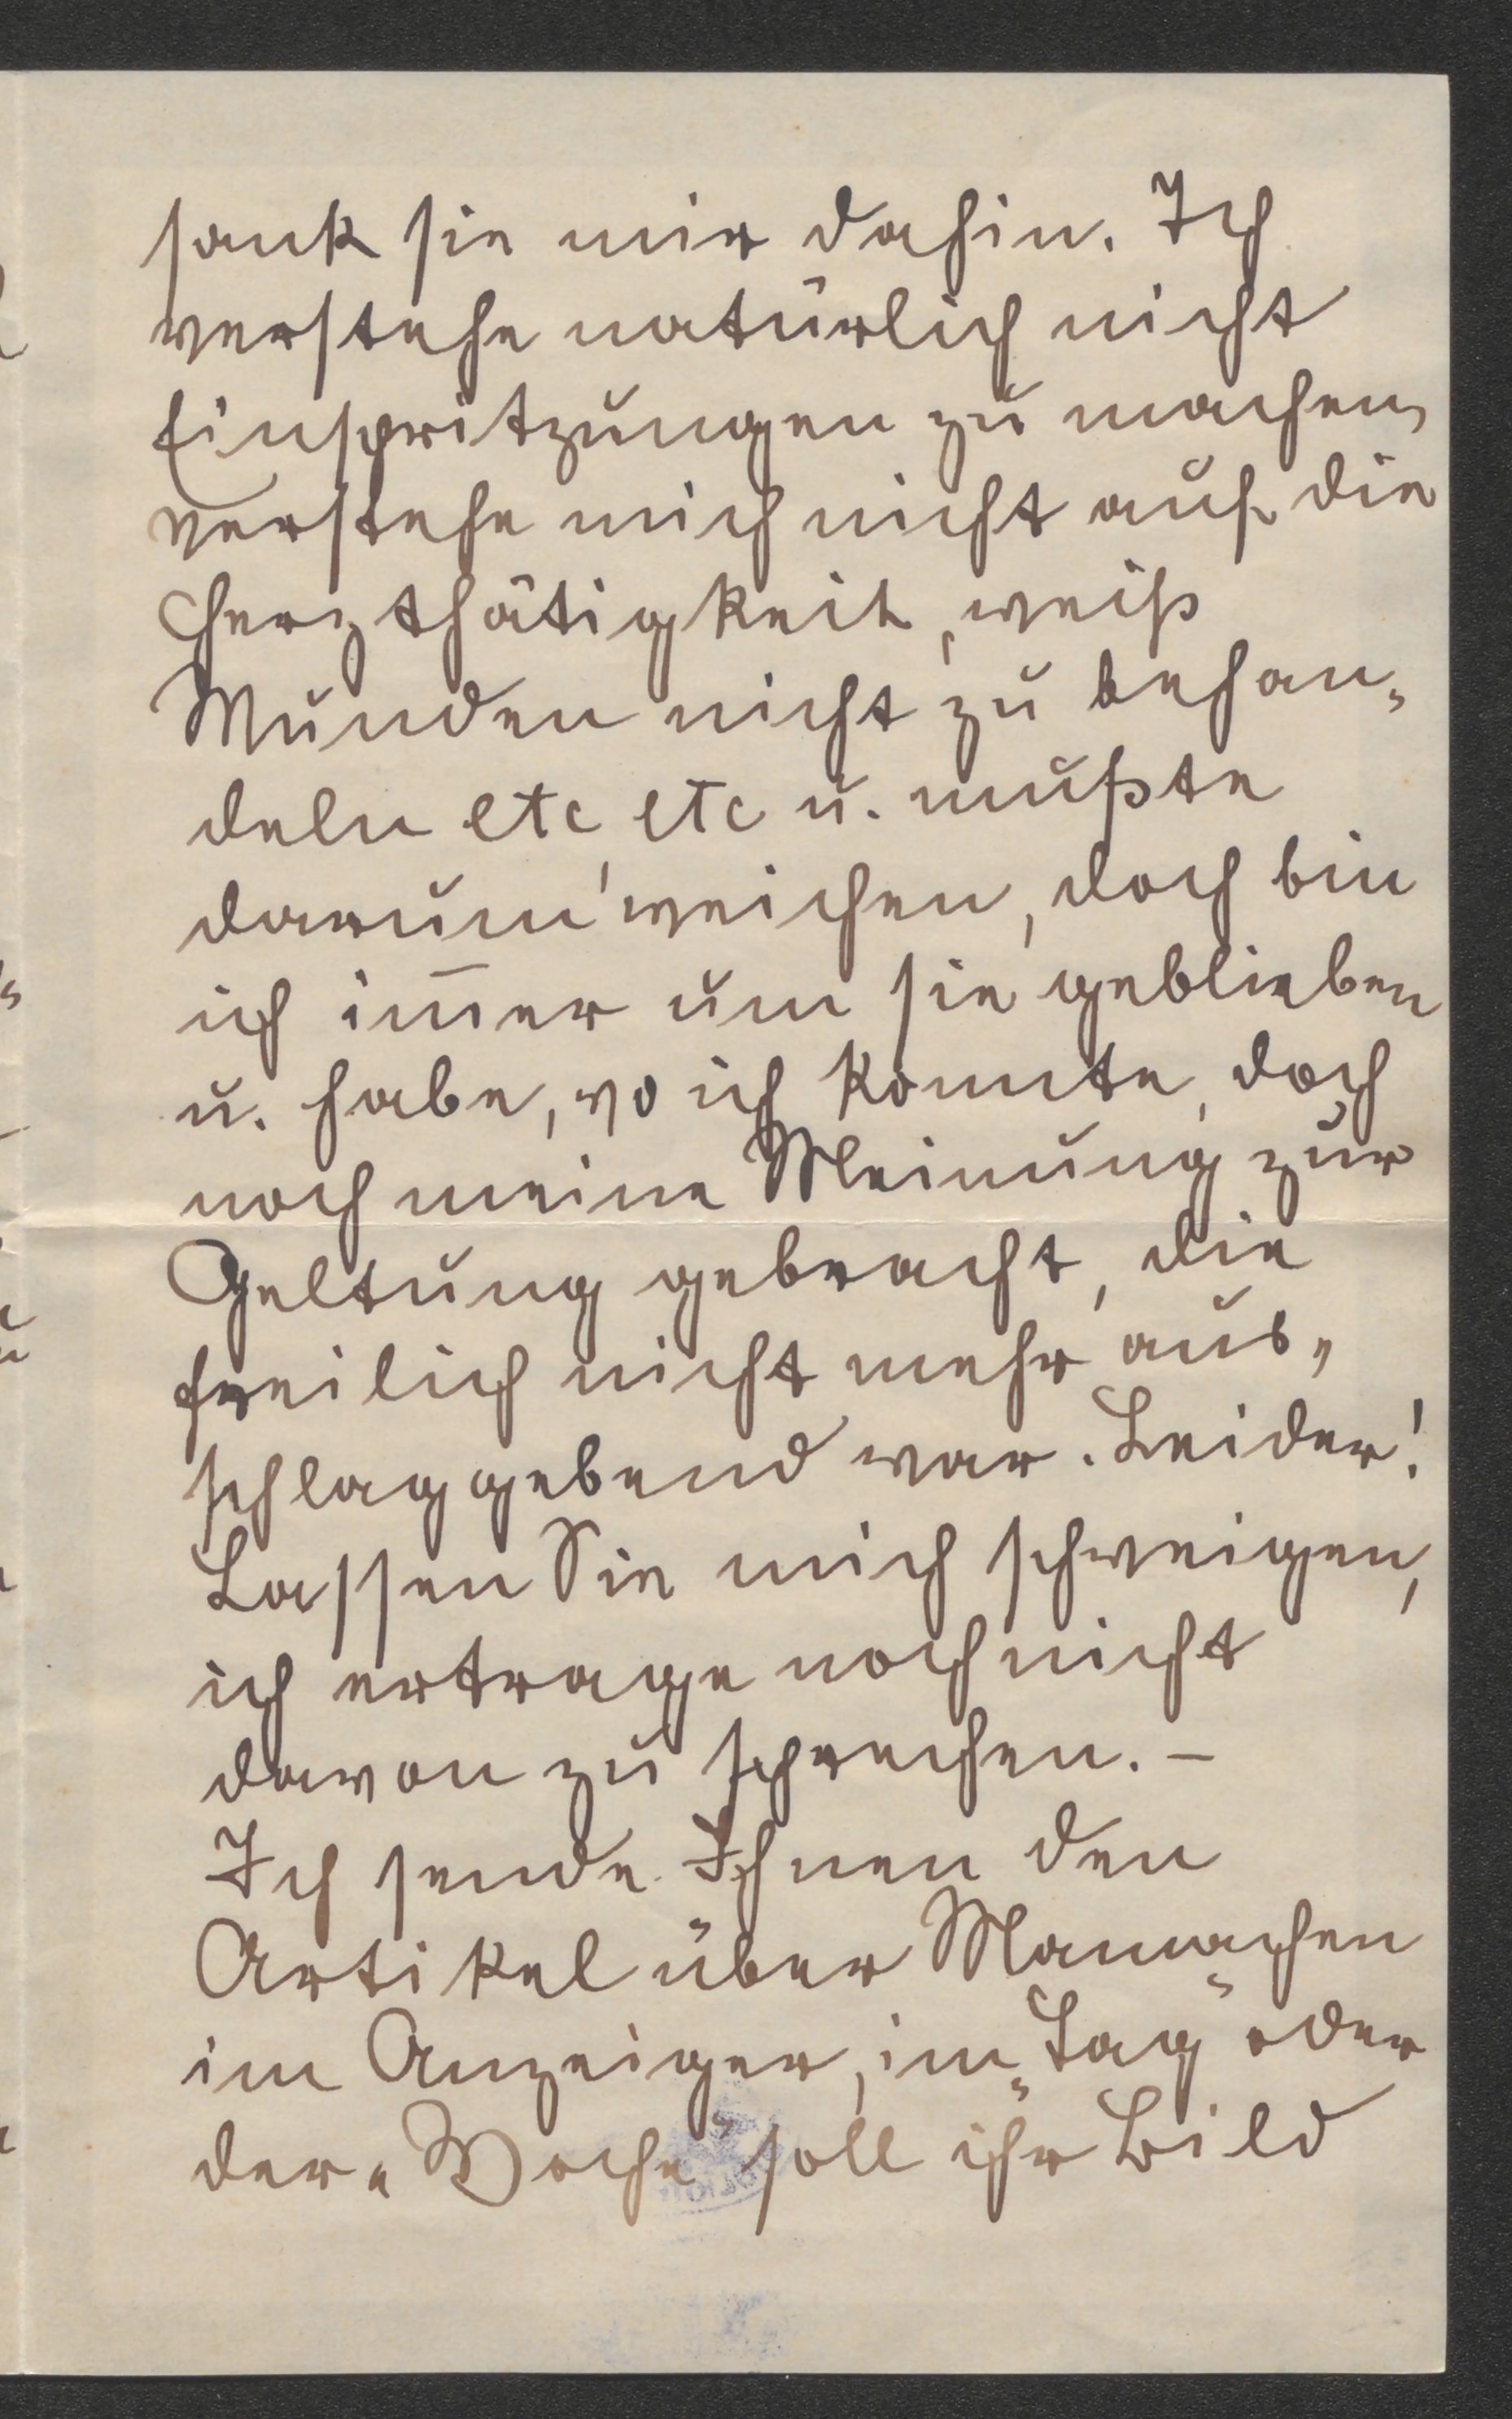 sank sie mir dahin. Ich
verstehe natürlich nicht
Einspritzungen zu machen,
verstehe mich nicht auf die
Herzthätigkeit, weiß
Wunden nicht zu behan-
deln etc, etc u. mußte
darum weichen, doch bin
ich im̅er um sie geblieben
u. habe, wo ich konnte, doch
noch meine Meinung zur
Geltung gebracht, die
freilich nicht mehr aus-
schlaggebend war. Leider!
Lassen Sie mich schweigen,
ich ertrage noch nicht
davon zu sprechen. –
Ich sende Ihnen den
Artikel über Mamachen
im Anzeiger, im „Tag“ oder
der „Woche“ soll ihr Bild